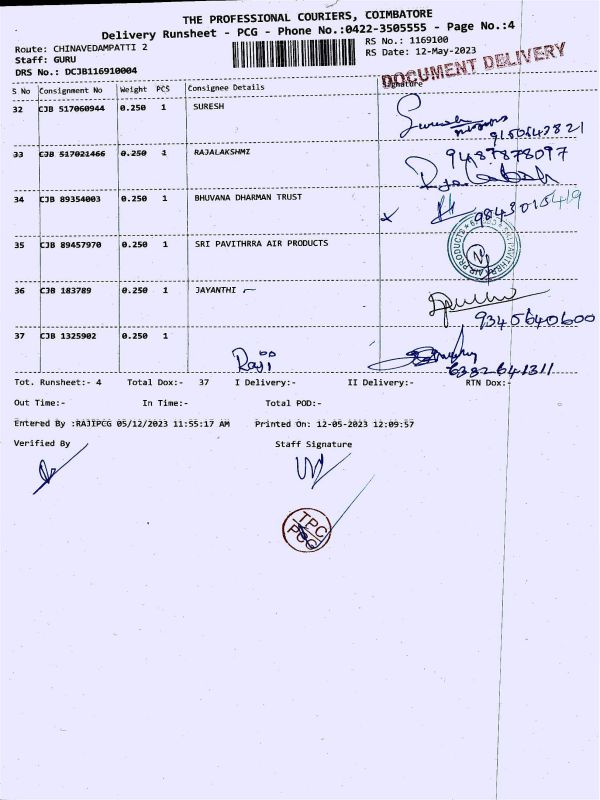 THE PROFESSIONAL COURIERS, COIMBATORE
Delivery Runsheet - PCG - Phone No.:0422-3505555 - Page No.:4
Route: CHINAVEDAMPATTI 2
RS No.: 1169100
Staff: GURU
RS Date: 12-May-2023
DRS No.: DCJB116910004
DOCUMENT DELIVERY
S No Consignment No Weight PCS Consignee Details Signature
32 CJB 517060944 0.250 1 SURESH
9150543821
33 CJB 517021466 0.250 1 RAJALAKSHMI
9487878097
34 CJB 89354003 0.250 1 BHUVANA DHARMAN TRUST
9843015419
35 CJB 89457970 0.250 1 SRI PAVITHRRA AIR PRODUCTS
36 CJB 183789 0.250 1 JAYANTHI
9345640600
37 CJB 1325902 0.250 1
Raji
6382641311
Tot. Runsheet:- 4 Total Dox:- 37 I Delivery:- II Delivery:- RTN Dox:-
Out Time:- In Time:- Total POD:-
Entered By :RAJIPCG 05/12/2023 11:55:17 AM Printed On: 12-05-2023 12:09:57
Verified By Staff Signature
TPC
PCG